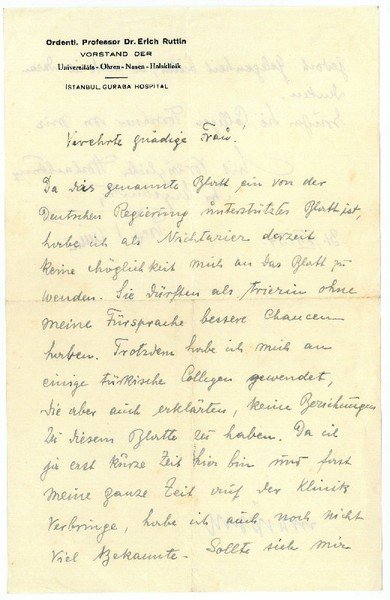 Ordentl. Professor Dr. Erich Ruttin
VORSTAND DER
Universitäts-Ohren-Nasen-Halsklinik
ISTANBUL, GURABA HOSPITAL
Verehrte gnädige Frau!
Da das genannte Blatt, ein von der
Deutschen Regierung unterstütztes Blatt ist,
habe ich als Nichtarier derzeit
keine Möglichkeit mich an das Blatt zu
wenden. Sie dürften als Arierin ohne
meine Fürsprache bessere Chancen
haben. Trotzdem habe ich mich an
einige türkische Collegen gewendet,
die aber auch erklärten, keine Beziehungen
zu diesem Blatte zu haben. Da ich
ja erst kurze Zeit hier bin und fast
meine ganze Zeit auf der Klinik
verbringe, habe ich auch noch nicht
viel Bekannte. Sollte sich mir